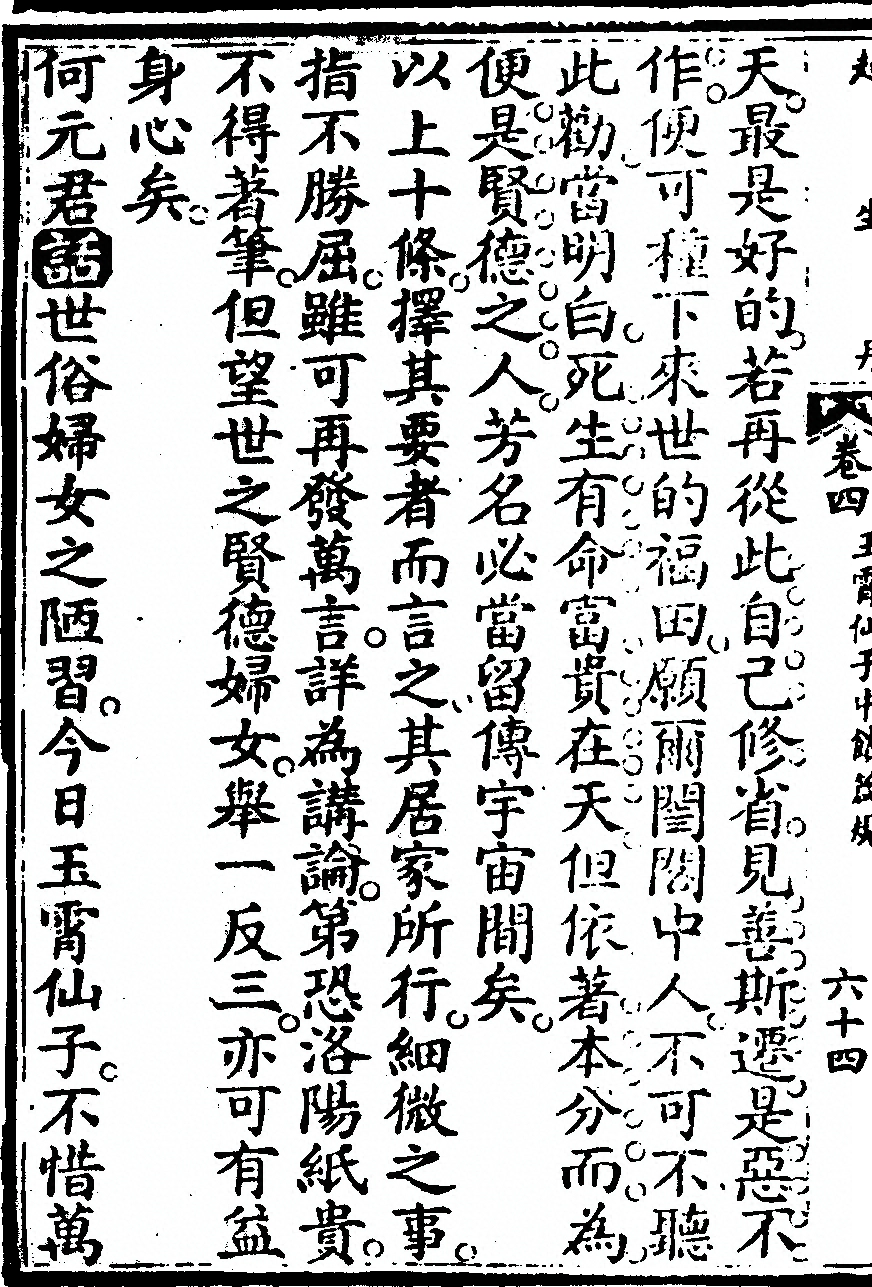 卷四
六十四
天最是好的若再從此自己修省見善斯遷是惡不
作便可種下來世的福田願爾閨閣中人不可不聽
此勸當明白死生有命富貴在天但依著本分而為
便是賢德之人芳名必當留傳宇宙間矣
以上十條擇其要者而言之其居家所行細微之事
指不勝屈雖可再發萬言詳為講論第恐洛陽紙貴
不得著筆但望世之賢德婦女舉一反三亦可有益
身心矣
何元君話世俗婦女之陋習今日玉霄仙子不惜萬